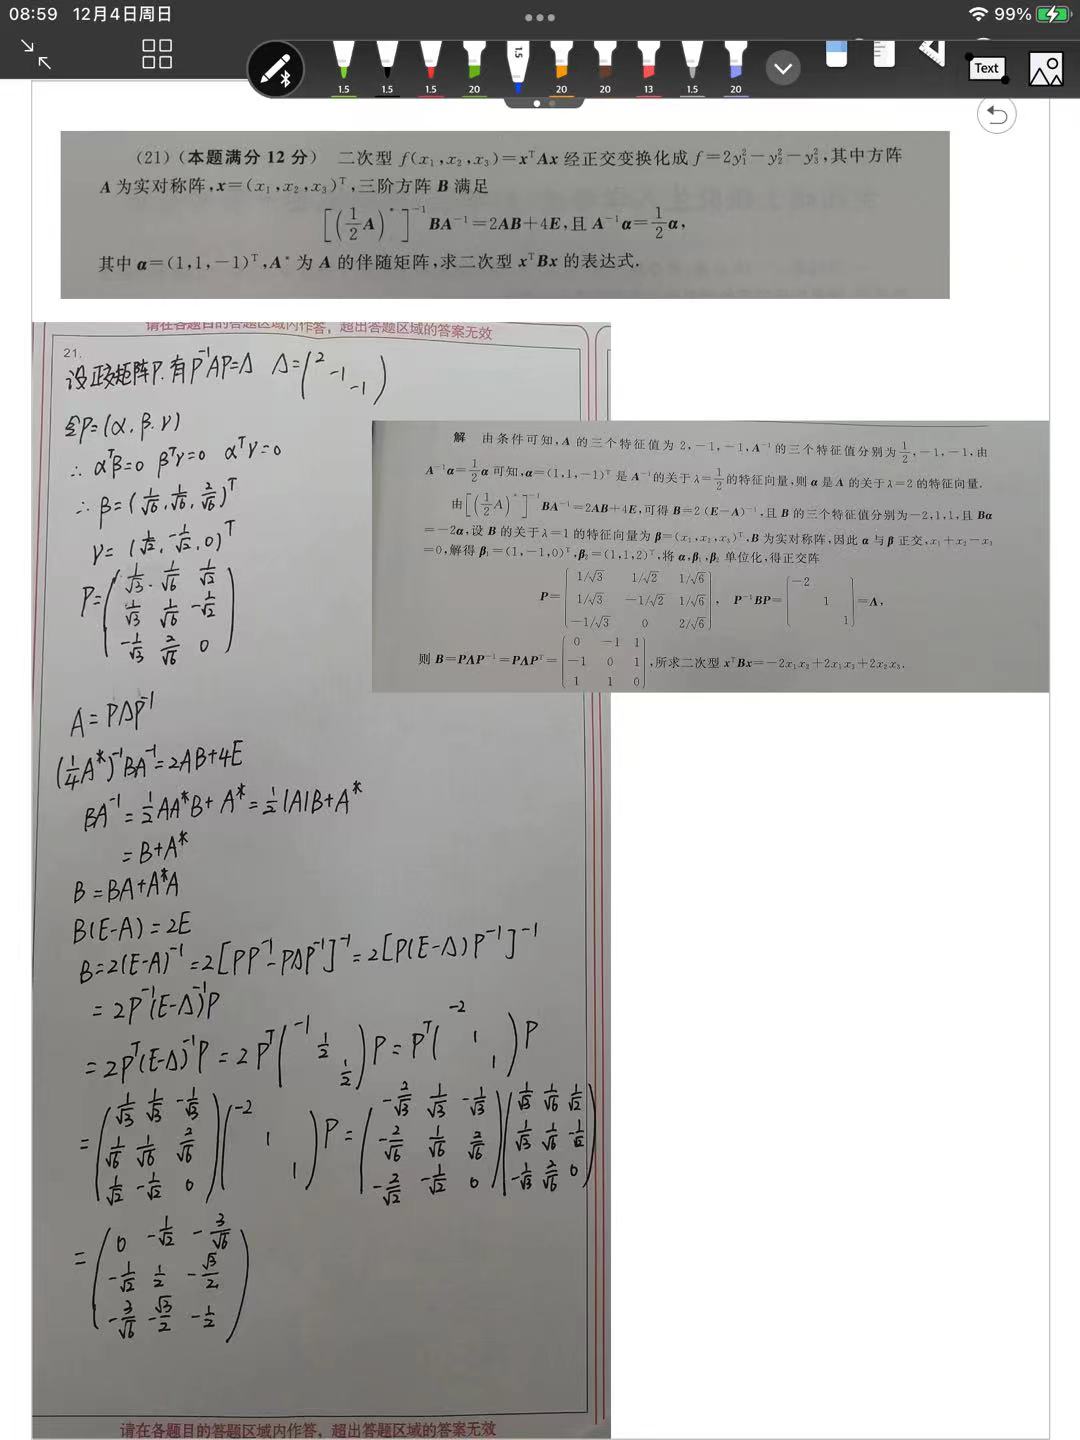 08:59 12月4日周日
99%
1.5 1.5 1.5 20 1.5 20 20 13 1.5 20
Text
(21)(本题满分 12 分) 二次型 f(x₁,x₂,x₃)=xᵀAx 经正交变换化成 f=2y₁²-y₂²-y₃²,其中方阵
A 为实对称阵,x=(x₁,x₂,x₃)ᵀ,三阶方阵 B 满足
[(1/2 A)*]⁻¹BA⁻¹=2AB+4E,且 A⁻¹α=1/2 α,
其中 α=(1,1,-1)ᵀ,A* 为 A 的伴随矩阵,求二次型 xᵀBx 的表达式.
请在各题目的答题区域内作答,超出答题区域的答案无效
21.
设正交矩阵P.有P⁻¹AP=Λ Λ=(2 -1 -1)
令P=(α.β.γ)
∴ αᵀβ=0 βᵀγ=0 αᵀγ=0
∴ β=(1/√6,1/√6,2/√6)ᵀ
γ=(1/√2,-1/√2,0)ᵀ
P=(1/√3 1/√6 1/√2
1/√3 1/√6 -1/√2
-1/√3 2/√6 0)
A=PΛP⁻¹
(1/4 A*)⁻¹BA⁻¹=2AB+4E
BA⁻¹=1/2 AA*B+A*=1/2|A|B+A*
=B+A*
B=BA+A*A
B(E-A)=2E
B=2(E-A)⁻¹=2[PP⁻¹-PΛP⁻¹]⁻¹=2[P(E-Λ)P⁻¹]⁻¹
=2P⁻¹(E-Λ)⁻¹P
=2Pᵀ(E-Λ)⁻¹P=2Pᵀ(-1 1/2 1/2)P=Pᵀ(-2 1 1)P
=(1/√3 1/√3 -1/√3
1/√6 1/√6 2/√6
1/√2 -1/√2 0)(-2 1 1)P=(-2/√3 1/√3 -1/√3
-2/√6 1/√6 2/√6
-2/√2 -1/√2 0)(1/√3 1/√6 1/√2
1/√3 1/√6 -1/√2
-1/√3 2/√6 0)
=(0 -1/√2 -3/√6
-1/√2 1/2 -√3/2
-3/√6 -√3/2 -1/2)
请在各题目的答题区域内作答,超出答题区域的答案无效
解 由条件可知,A 的三个特征值为 2,-1,-1,A⁻¹的三个特征值分别为1/2,-1,-1,由
A⁻¹α=1/2 α 可知,α=(1,1,-1)ᵀ 是 A⁻¹的关于 λ=1/2的特征向量,则 α 是 A 的关于 λ=2 的特征向量.
由[(1/2 A)*]⁻¹BA⁻¹=2AB+4E,可得 B=2(E-A)⁻¹,且 B 的三个特征值分别为-2,1,1,且 Bα
=-2α,设 B 的关于 λ=1 的特征向量为 β=(x₁,x₂,x₃)ᵀ,B 为实对称阵,因此 α 与 β 正交,x₁+x₂-x₃
=0,解得 β₁=(1,-1,0)ᵀ,β₂=(1,1,2)ᵀ,将 α,β₁,β₂ 单位化,得正交阵
P=[1/√3 1/√2 1/√6
1/√3 -1/√2 1/√6
-1/√3 0 2/√6], P⁻¹BP=[-2 1 1]=Λ,
则 B=PΛP⁻¹=PΛPᵀ=[0 -1 1
-1 0 1
1 1 0],所求二次型 xᵀBx=-2x₁x₂+2x₁x₃+2x₂x₃.